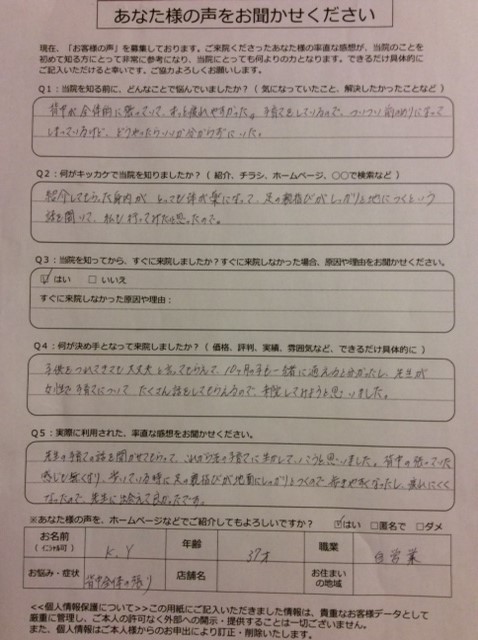 あなた様の声をお聞かせください
現在、「お客様の声」を募集しております。ご来院くださったあなた様の率直な感想が、当院のことを
初めて知る方にとって非常に参考になり、当院にとっても何よりの力となります。できるだけ具体的に
ご記入いただけると幸いです。ご協力よろしくお願いします。
Q1:当院を知る前に、どんなことで悩んでいましたか?(気になっていたこと、解決したかったことなど)
背中が全体的に張っていて、すごく疲れやすかった。子育てをしているので、ついつい前のめりになって
しまっているけど、どうやったらいいか分からずにいた。
Q2:何がキッカケで当院を知りましたか?(紹介、チラシ、ホームページ、○○で検索など)
紹介してもらった身内が とっても体が楽になって、足の親指びがしっかりと地につくという
話を聞いて、私も行ってみたいと思ったので。
Q3:当院を知ってから、すぐに来院しましたか?すぐに来院しなかった場合、原因や理由をお聞かせください。
☑はい □いいえ
すぐに来院しなかった原因や理由:
Q4:何が決め手となって来院しましたか?(価格、評判、実績、雰囲気など、できるだけ具体的に)
子供をつれてきても大丈夫と言ってもらえて、10ヶ月の子も一緒に通えると分かったし、先生が
女性で子育てについて たくさん話をしてもらえるので、来院してみようと思いました。
Q5:実際に利用された、率直な感想をお聞かせください。
先生の子育ての話を聞かせてもらって、これから子の子育てに生かしていこうと思いました。背中の張っていた
感じも無くなり、歩いている時に足の親指びが地面にしっかりとつくので 歩きやすくなったし、疲れにくく
なったので、先生に出会えて良かったです。
※あなた様の声を、ホームページなどでご紹介してもよろしいですか? ☑はい □匿名で □ダメ
お名前(イニシャル可) K.Y 年齢 37才 職業 自営業
お悩み・症状 背中全体の張り 店舗名 お住まいの地域
<<個人情報保護について>>この用紙にご記入いただきました情報は、貴重なお客様データとして
厳重に管理し、ご本人の許可なく外部への開示・提供することは一切ございません。
また、個人情報はご本人様からのお申出により訂正・削除いたします。